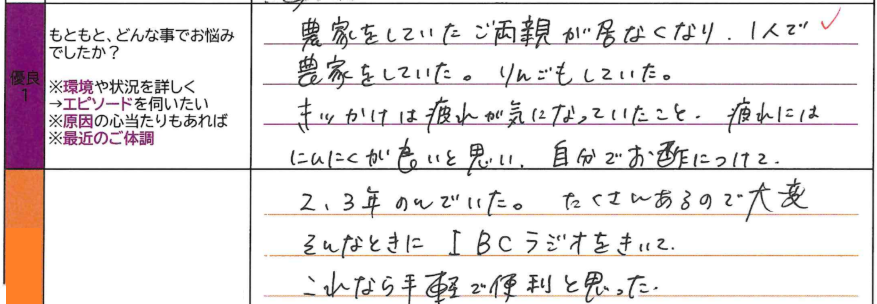 優良
1
もともと、どんな事でお悩み
でしたか？
※環境や状況を詳しく
→エピソードを伺いたい
※原因の心当たりもあれば
※最近のご体調
農家をしていたご両親が居なくなり、1人で
農家をしていた。りんごもしていた。
きっかけは疲れが気になっていたこと。疲れには
にんにくが良いと思い、自分でお酢につけて。
2、3年のんでいた。たくさんあるので大変
そんなときにIBCラジオをきいて、
これなら手軽で便利と思った。